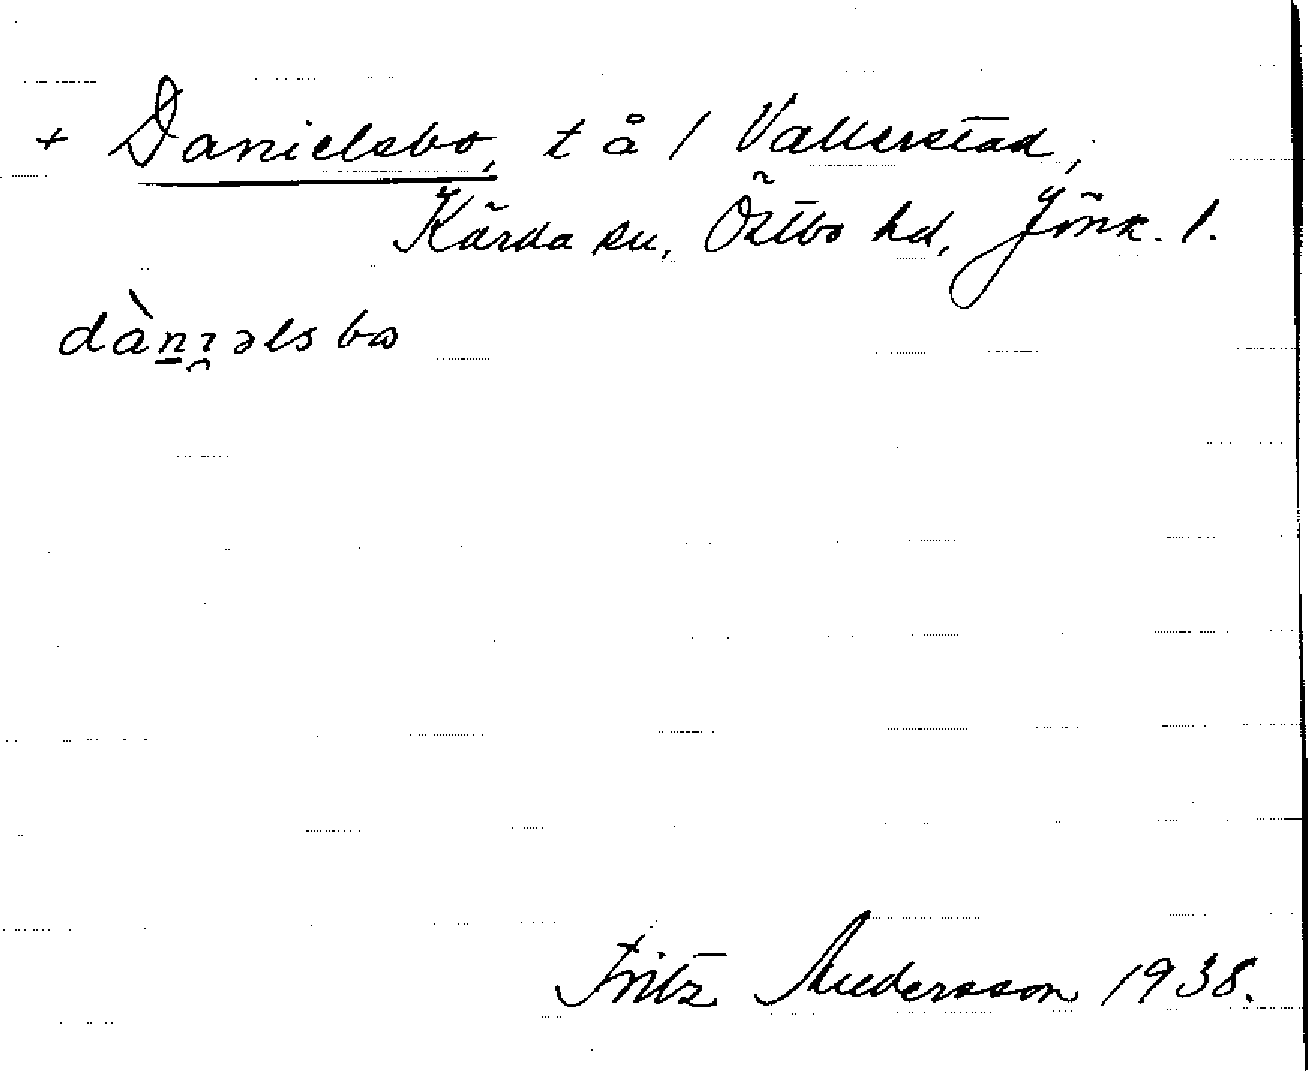 + Danielsbo, t å / Vallerstad,
Kärda sn, Östbo hd, Jönk. l.
dànıəlsbω
Fritz Andersson 1938.